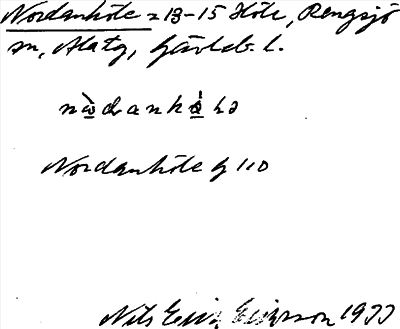 Nordanhöle = 13-15 Höle, Rengsjö
sn, Alatg, Gävleb. l.
Nordanhöle g 110
Nils Eric Eriksson 1977